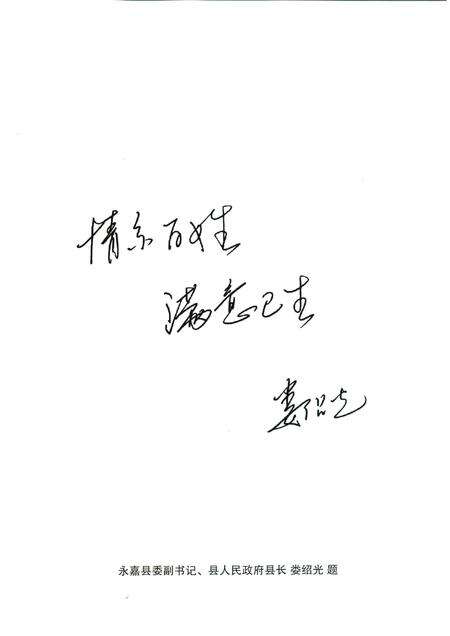 情系百姓
满意民生
娄绍光
永嘉县委副书记、县人民政府县长 娄绍光 题